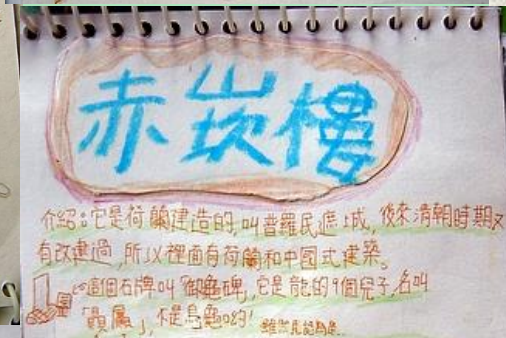 赤崁樓
介紹:它是荷蘭建造的,叫普羅民遮城,後來清朝時期又
有改建過,所以裡面有荷蘭和中國式建築。
這個石碑叫「御龜碑」,它是龍的9個兒子,名叫
「贔屭」,不是烏龜喲!